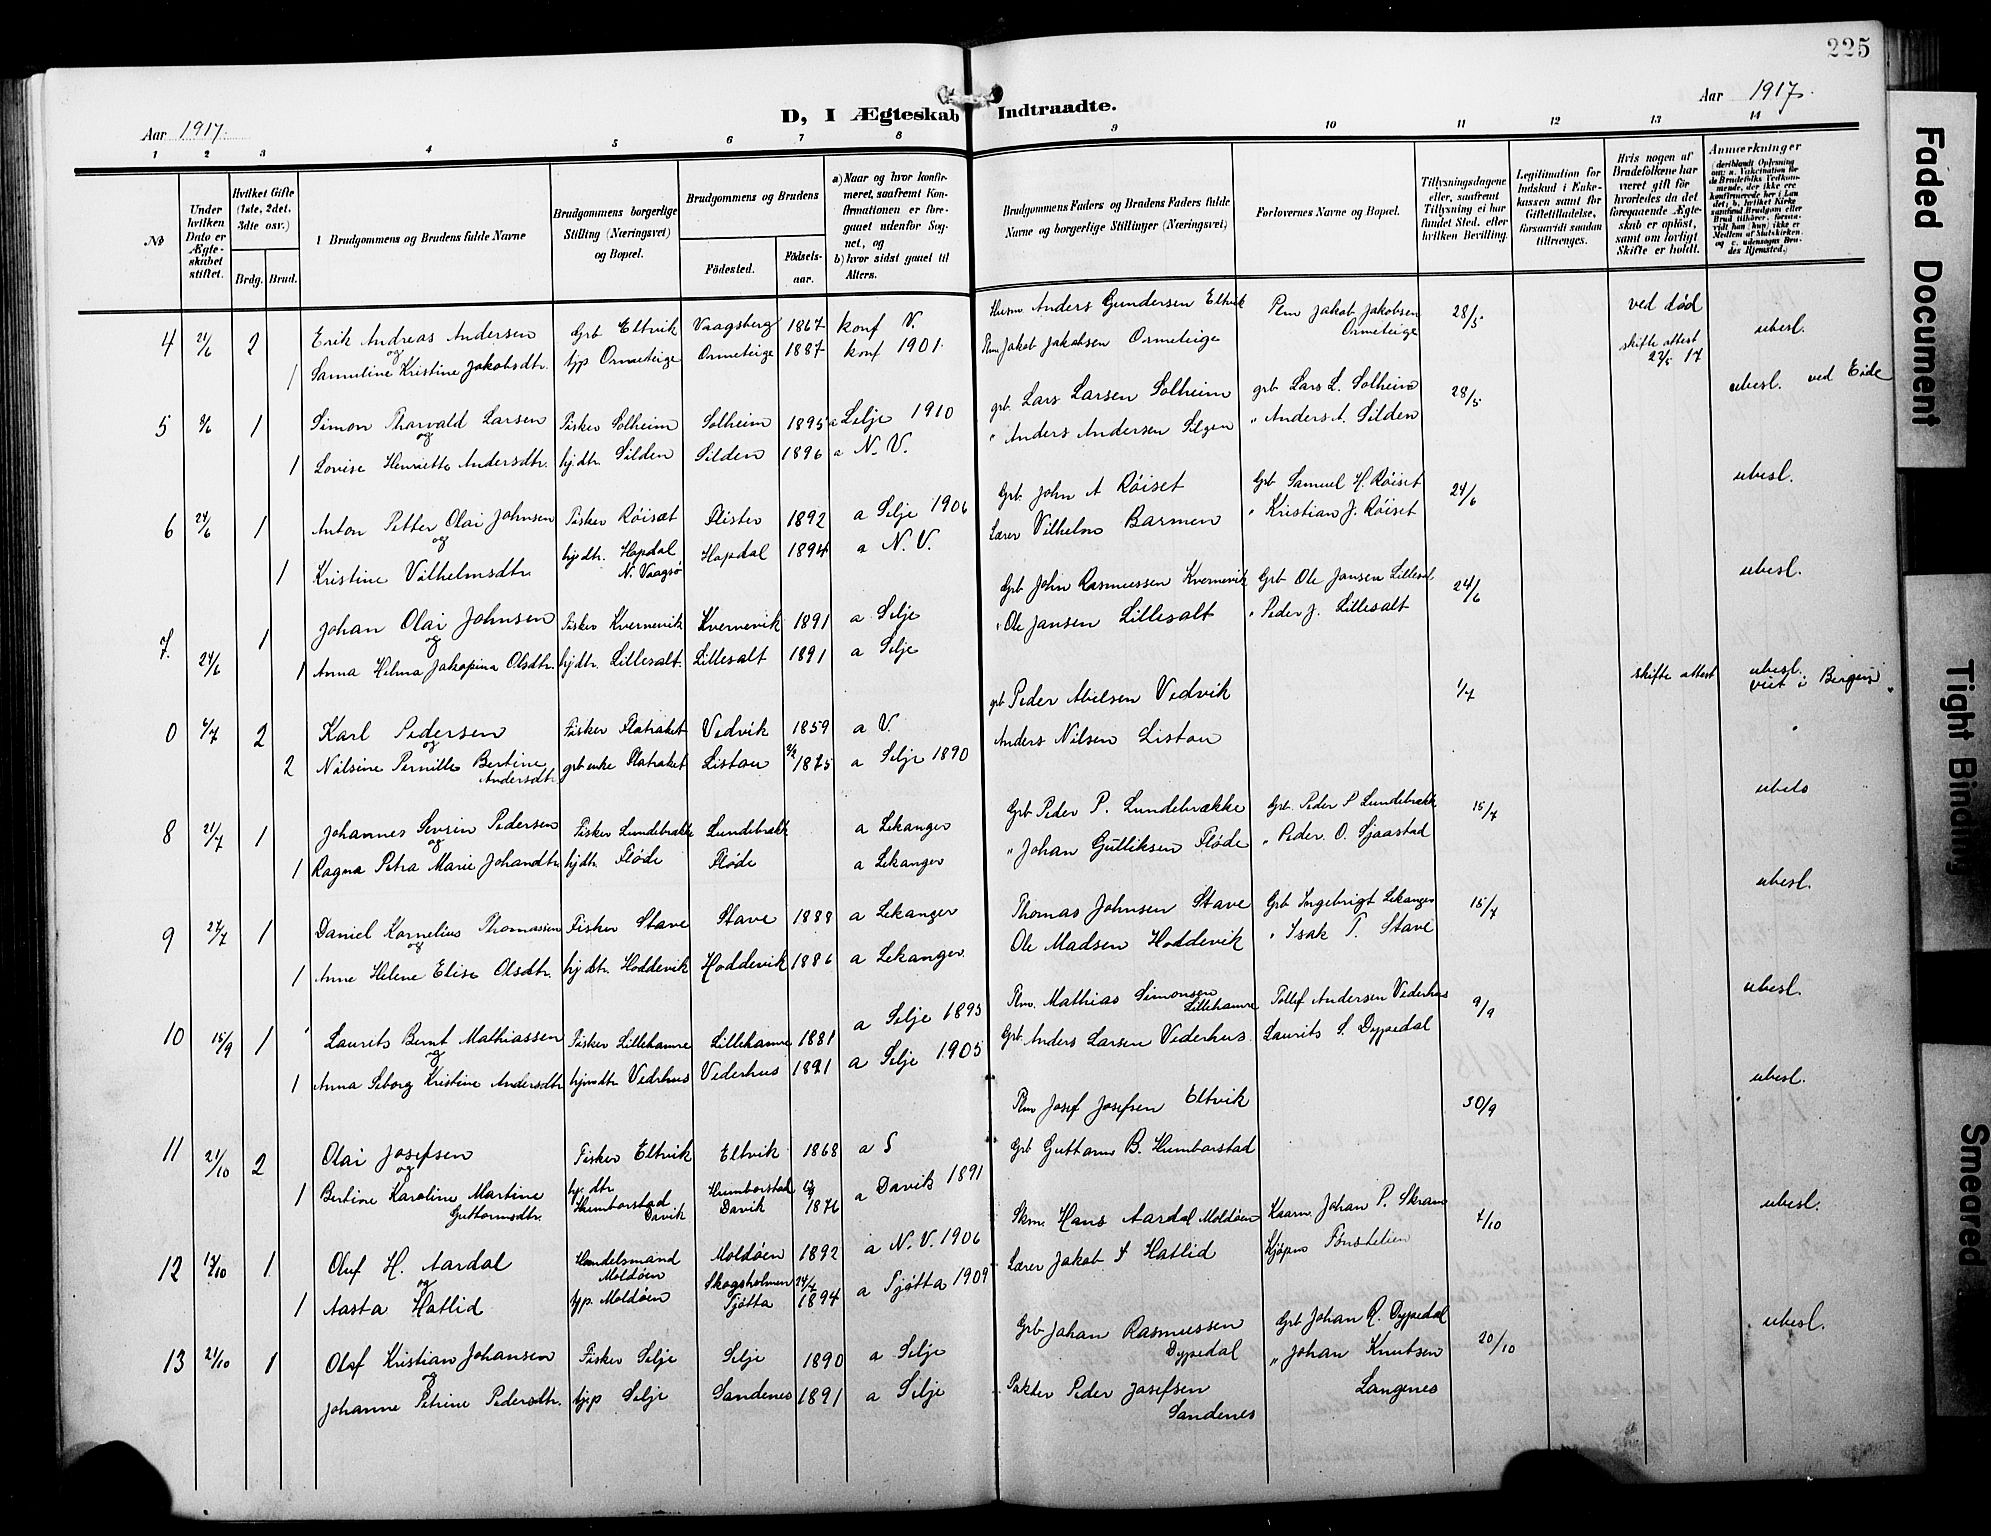 225
D, I Ægteskab Indtraadte.
Aar 1917.
Aar 1917.
1 2 3 4 5 6 7 8 9 10 11 12 13 14
No
Under hvilken Dato er Ægteskabet stiftet.
Hvilket Gifte (1ste, 2det, 3die osv.)
Brdg. Brud.
Brudgommens og Brudens fulde Navne
Brudgommens borgerlige Stilling (Næringsvei) og Bopæl.
Brudgommens og Brudens
Födested.
Födselsaar.
a) Naar og hvor konfirmeret, saafremt Konfirmationen er foregaaet udenfor Sognet, og
b) hvor sidst gaaet til Alters.
Brudgommens Faders og Brudens Faders fulde Navne og borgerlige Stillinger (Næringsvei)
Forlovernes Navne og Bopæl.
Tillysningsdagene eller, saafremt Tillysning ei har fundet Sted, efter hvilken Bevilling.
Legitimation for Indskud i Enkekassen samt for Giftetilladelse, forsaavidt saadan tiltrænges.
Hvis nogen af Brudefolkene har været gift för hvorledes da det foregaaende Ægteskab er oplöst, samt om lovligt Skifte er holdt.
Anmærkninger
4 21/6 2 Erik Andreas Andersen Grb Eltvik Vaagsberg 1867 konf V. Husm Anders Gundersen Eltvik Plm Jakob Jakobsen Ormeteige 28/5 ved död
og
1 Samuline Kristine Jakobsdtr. tjp Ormeteige Ormeteige 1887 konf 1901. Plm Jakob Jakobsen Ormeteige skifte attest 17 ubesl.
5 1 Simon Thorvald Larsen Fisker Solheim Solheim 1895 a Selje 1910 grb. Lars Larsen Solheim grb Lars L. Solheim 28/5 ubesl. ved Eide
og
1 Lovise Henriette Andersdtr. hjdtr. Silden Silden 1896 a N. V. " Anders Andersen " Anders A. Silden
6 24/6 1 Anton Petter Olai Johnsen Fisker Röiset Flister 1892 a Selje 1906 Grb. John A Röiset Grb Samuel H. Röiset 24/6 ubesl.
og
1 Kristine Vilhelmsdtr. hjdtr. Hopdal N. Vaagsö Hopdal 1894 a N. V. Lærer Vilhelm Barmen " Kristian J. Röiset
7. 24/6 1 Johan Olai Johnsen Fisker Kvernevik Kvernevik 1891 a Selje Grb John Rasmussen Kvernevik Grb Ole Jansen 24/6 ubesl.
og
1 Anna Helma Jakopina Olsdtr. hjdtr. Lillesalt. Lillesalt 1891 a Selje " Ole Jansen Lillesalt " Peder J. Lillesalt
0 2 Karl Pedersen Fisker Flatraket Vedvik 1859 a V. grb Peder Abelsen Vedvik 1/7 skifte attest ubesl. viet i Bergen
og
2 Nilsine Pernille Bertine Andersdtr. grb enke Flatraket Listou 1875 a Selje 1890 Anders Nilsen Listou
8 21/7 1 Johannes Sevrin Pedersen Fisker Lundebrække Lundebrækk a Lekanger Grb Peder P. Lundebrække Grb. Peder P Lundebrækk 15/7
og
1 Ragna Petra Marie Johandtr. hjdtr. Flöde Flöde a Lekanger " Johan Gulliksen Flöde " Peder O. Sjaastad
9 1 Daniel Kornelius Thomassen Fisker Stave Stave 1888 a Lekanger Thomas Johnsen Stave Grb Ingebrigt Lekanger 15/7 ubesl.
og
1 Anne Helene Elise Olsdtr. hjdtr. Hoddevik Hoddevik 1886 a Lekanger. Ole Madsen Hoddevik " Isak T. Stave
10 15/9 1 Laurits Bernt Mathiassen Fisker Lillehamre Lillehamre 1881 a Selje 1895 Plm. Mathias Simonsen Lillehamre Tollef Andersen Vederhus 9/9 ubesl.
og
1 Anna Seborg Kristine Andersdtr Vederhus 1891 a Selje 1905 Grb. Anders Larsen Vederhus. Laurits S. Dypedal
11 21/10 2 Olai Josefsen Fisker Eltvik Eltvik 1868 a S Plm Josef Josefsen Eltvik 30/9 ubesl.
og
1 Bertine Karoline Martine Guttormsdtr. hjdtr Humborstad Davik Humborstad Davik 1876 a Davik 1891 Grb Guttorm B. Humborstad
12 1 Oluf H. Aardal Handelsmand Moldöen Moldöen 1892 a N. V. 1906 Skm. Hans Aardal Moldöen Johan P. Skram ubesl.
og
1 Aasta Hatlid tjp. Moldöen Skogsholmen Tjötta 1894 a Tjötta 1909 Lærer Jakob Hatlid
13 21/10 1 Olaf Kristian Johansen Fisker Selje Selje 1890 a Selje Grb Johan Rasmussen Dypedal Grb Johan R. Dypedal 20/10 ubesl.
og
Johanne Petrine Pedersdtr. tjp Selje Sandenes 1891 a Selje Pakter Peder Josefsen Sandenes " Johan Knutsen Langenes
Faded Document
Tight Binding
Smeared